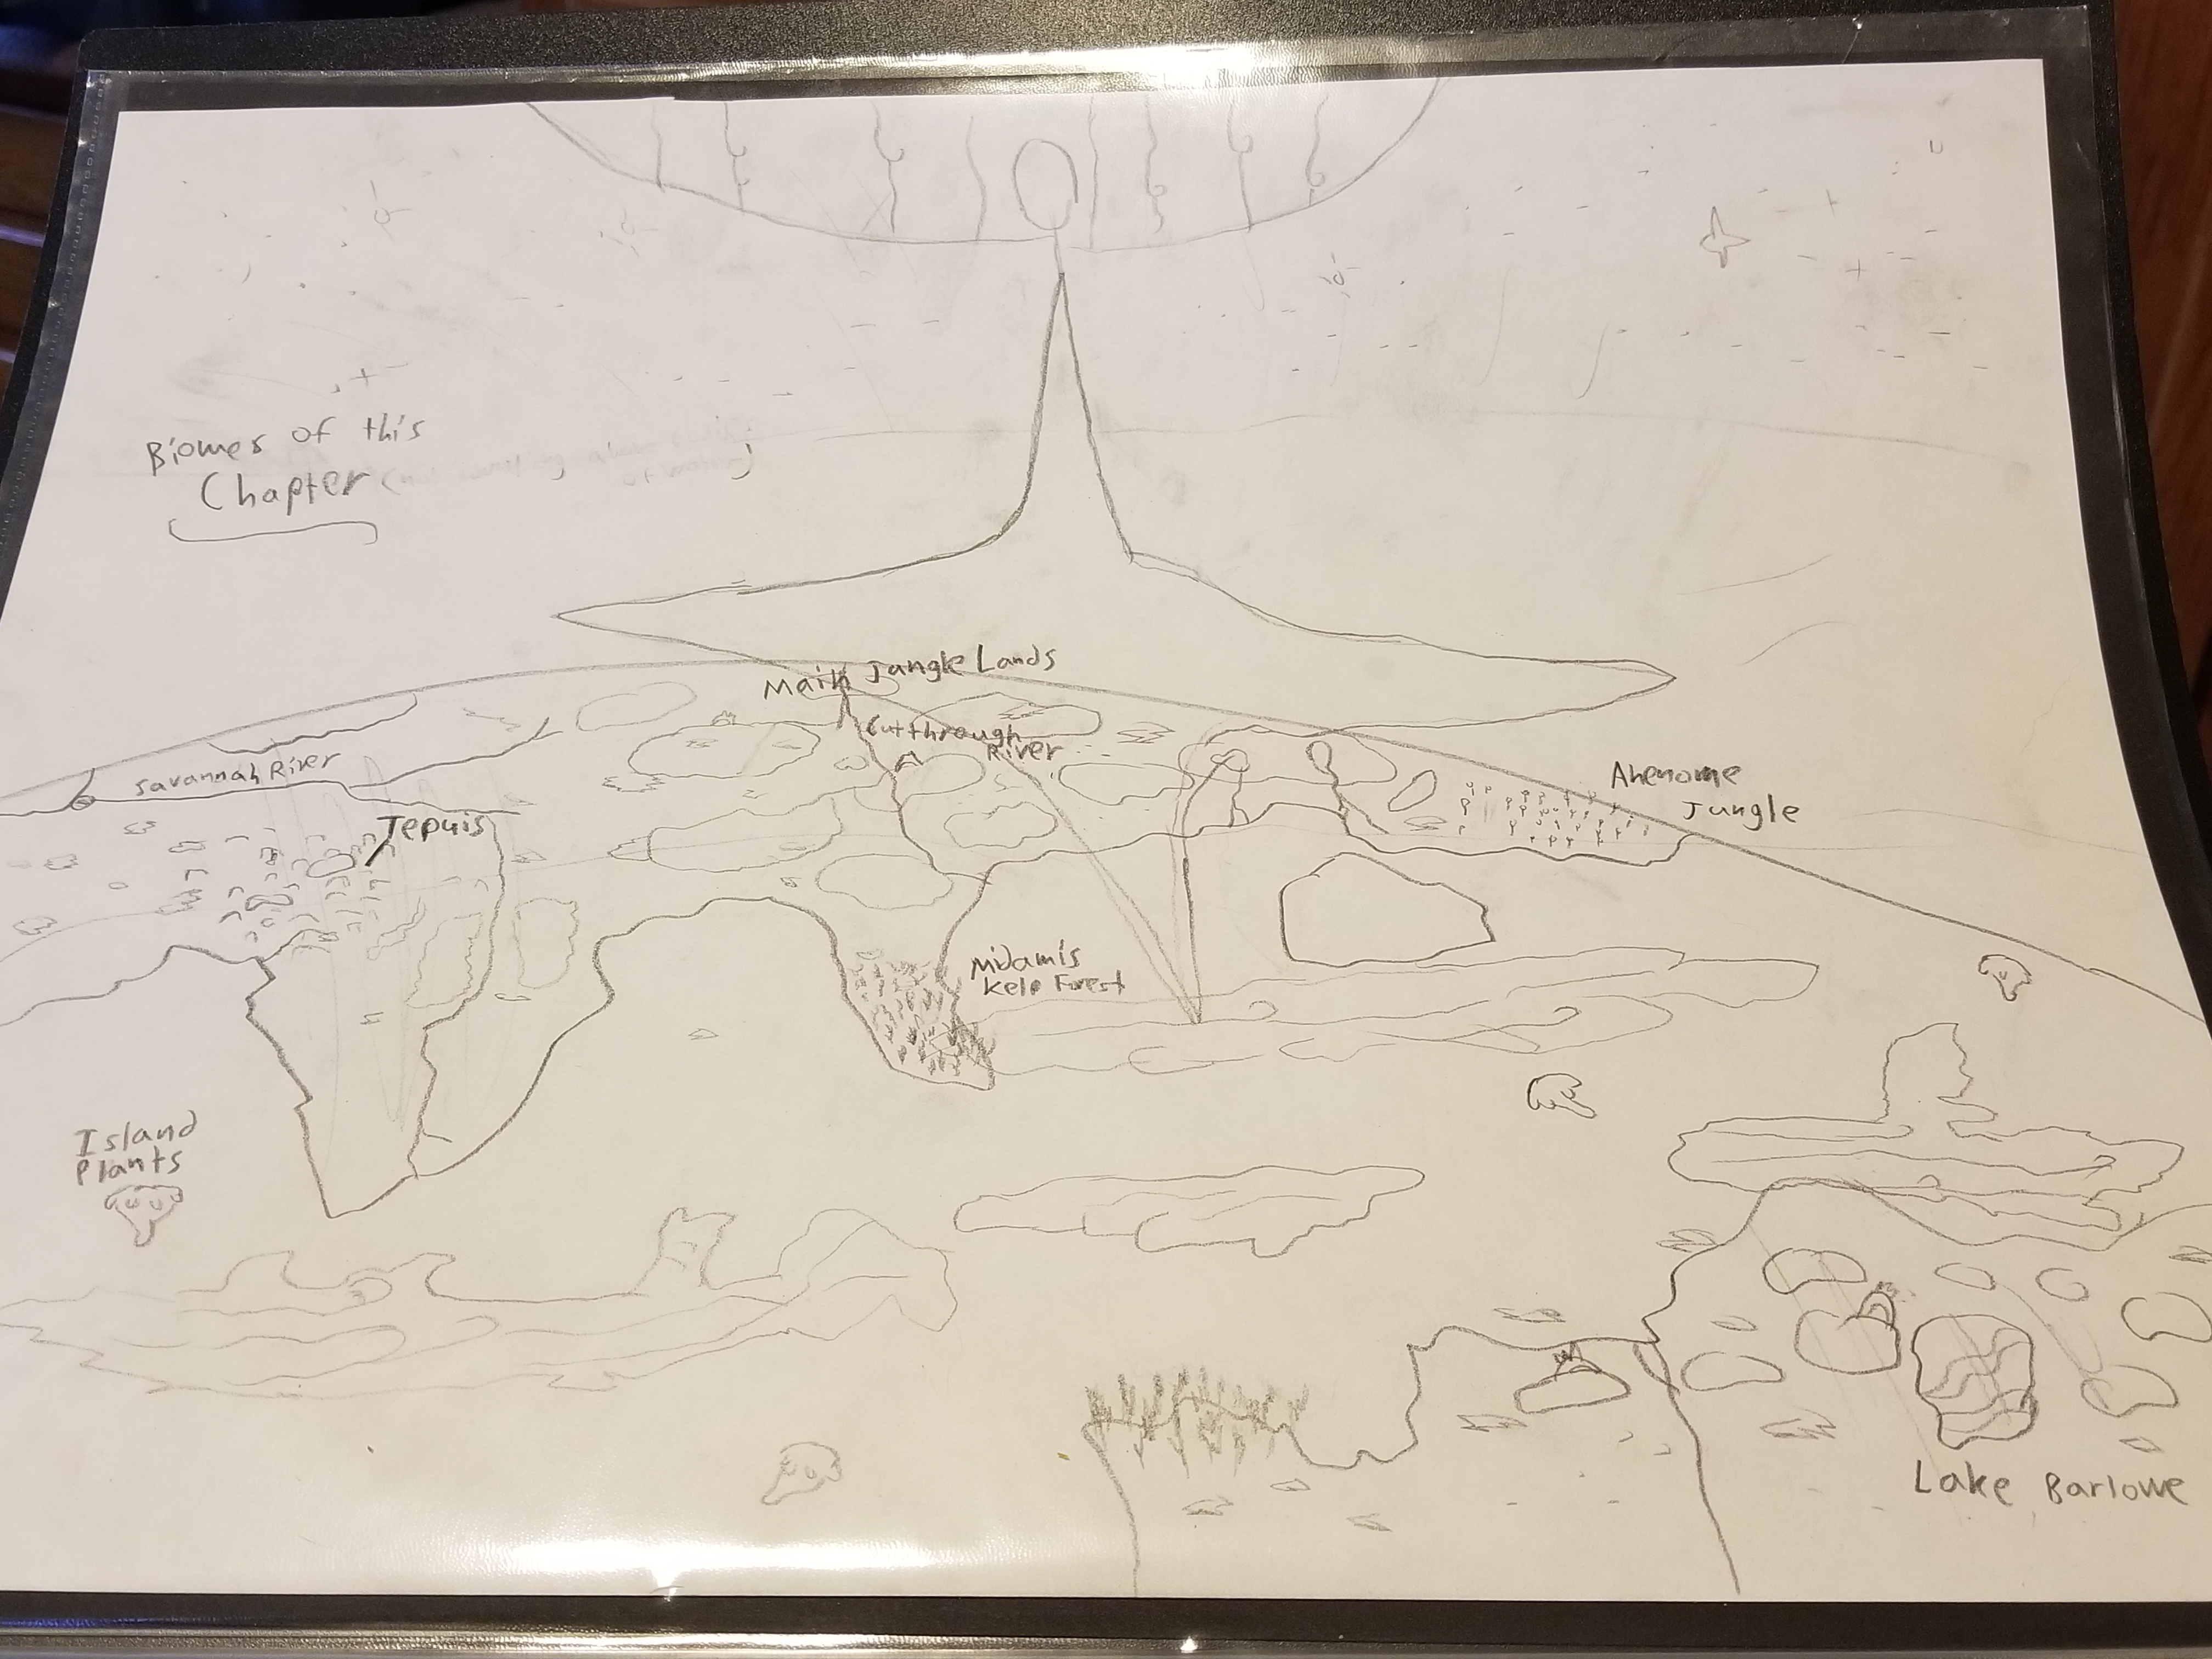 Biomes of this
Chapter
Main Jungle Lands
Cutthrough
River
Savannah River
Tepuis
Anenome
Jungle
Midamis
Kelp Forest
Island
Plants
Lake Barlowe